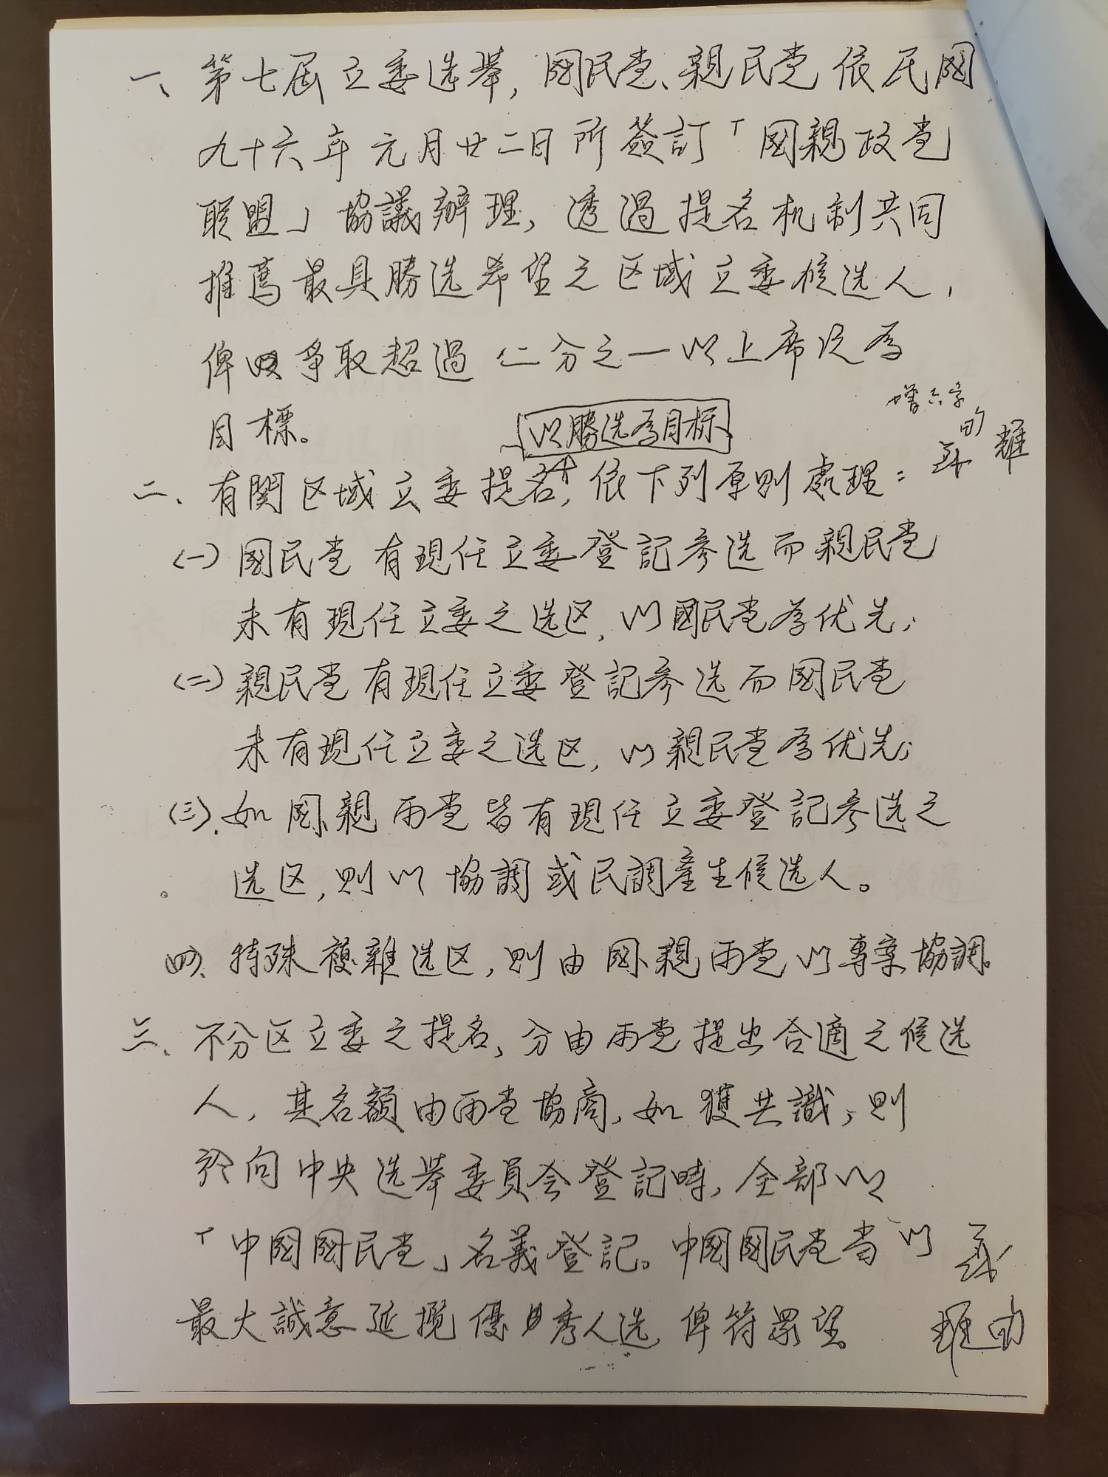 一、第七届立委选举，國民党、親民党依民國
九十六年元月廿二日所簽訂「國親政党
联盟」協議辦理，透過提名机制共同
推薦最具勝选希望之区域立委候选人，
俾 爭取超過二分之一以上席次為
目標。
以勝选為目標
增六字
二、有関区域立委提名，依下列原則處理：
(一)國民党有現任立委登記參选而親民党
未有現任立委之选区，以國民党為优先；
(二)親民党有現任立委登記參选而國民党
未有現任立委之选区，以親民党為优先；
(三)、如國、親兩党皆有現任立委登記參选之
选区，則以協調或民調產生候选人。
四、特殊複雜选区，則由國、親兩党以專案協調。
三、不分区立委之提名，分由兩党提出合適之候选
人，其名額由兩党協商，如獲共識，則
於向中央选举委員会登記時，全部以
「中國國民党」名義登記。中國國民党当以
最大誠意延攬優秀人选，俾符眾望。